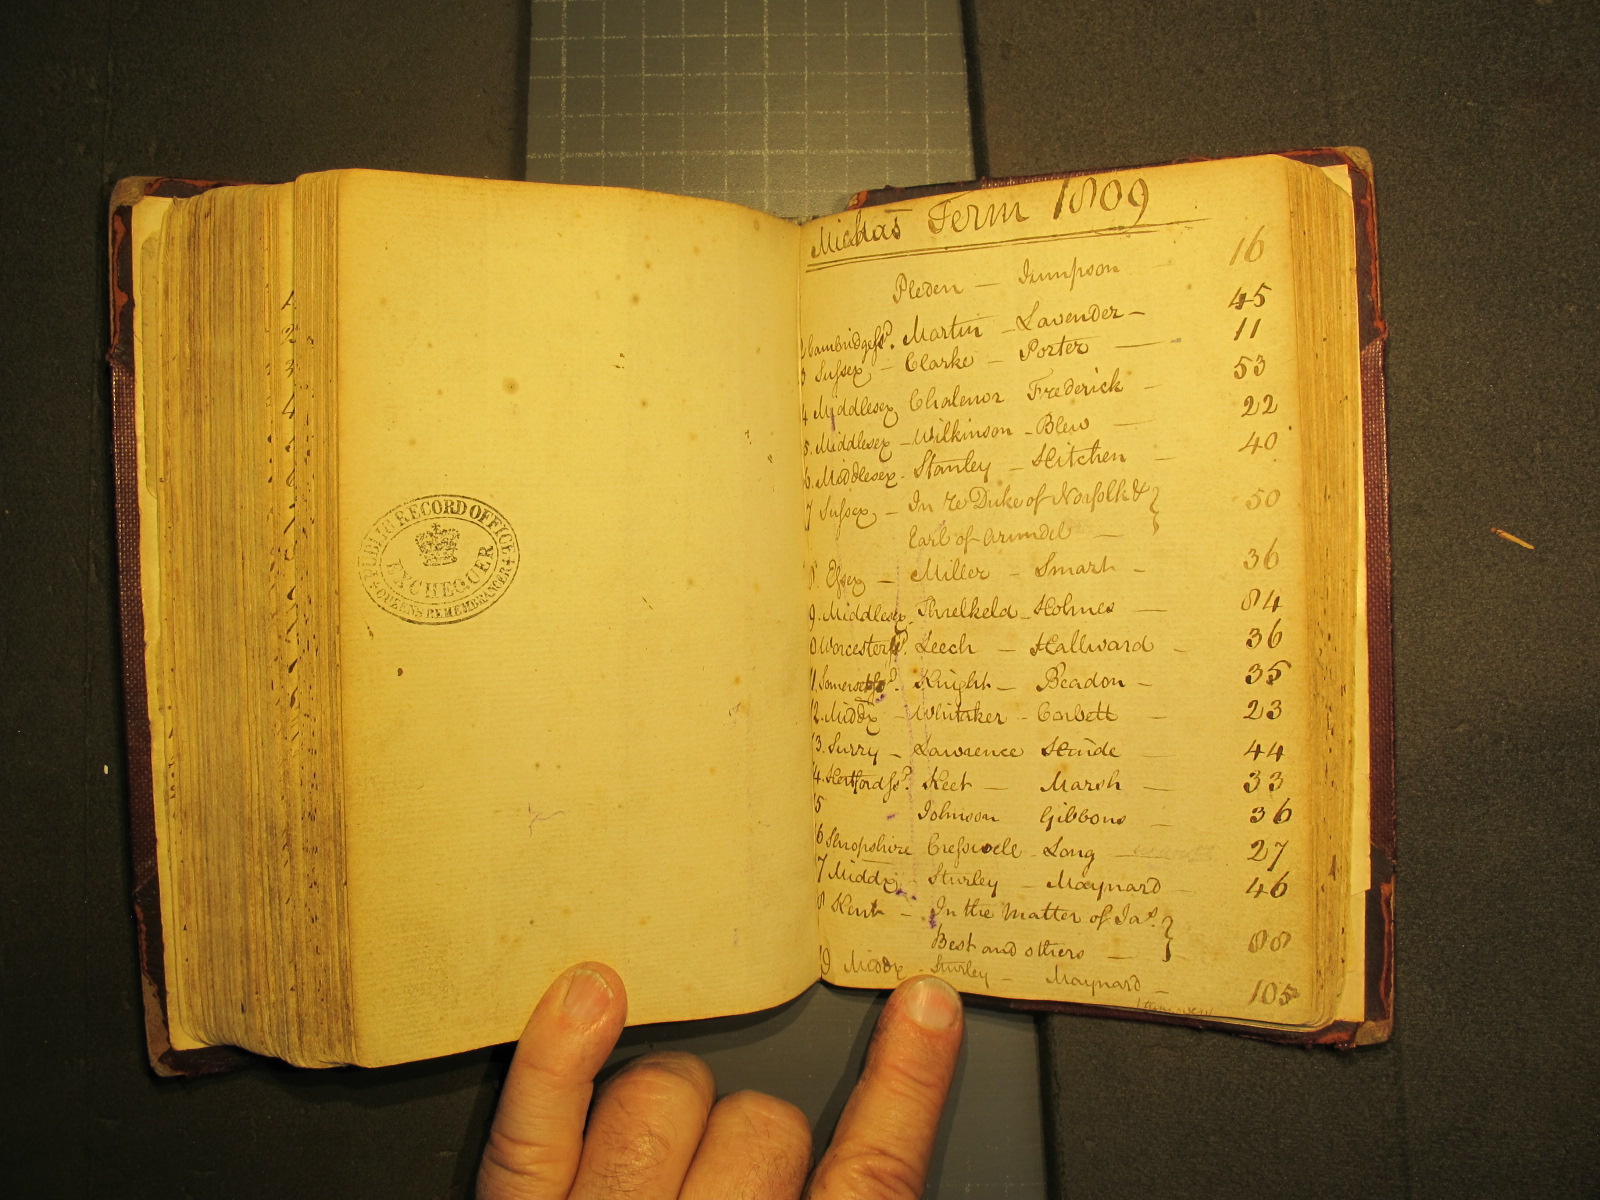 PUBLIC RECORD OFFICE
EXCHEQUER
QUEENS REMEMBRANCER
Michãs Term 1809
Pleden — Jumpson 16
2 Cambridgesh. Martin — Lavender — 45
3 Sussex — Clarke — Porter — 11
4 Middlesex Chalenor Frederick — 53
5. Middlesex — Wilkinson — Blew — 22
6. Middlesex — Stanley — Hitchen — 40
7 Sussex — In re Duke of Norfolk & } 50
Earl of Arundel —
8 Essex — Miller — Smarh — 36
9. Middlesex Threlkeld — Holmes — 84
0 Worcestersh. Leech — Hallward — 36
11. Somersetsh. Knight — Beadon — 35
12. Middx — Whitaker — Corbett — 23
13. Surry — Lawrence Hinde — 44
14. Hertfordsh. Keet — Marsh — 33
15 Johnson Gibbons — 36
16 Shropshire Cresswell — Long — 27
17 Middx — Sturley — Maynard — 46
8 Kent — In the Matter of Jas. }
Best and others — 88
19 Middx — Sturley — Maynard — 105